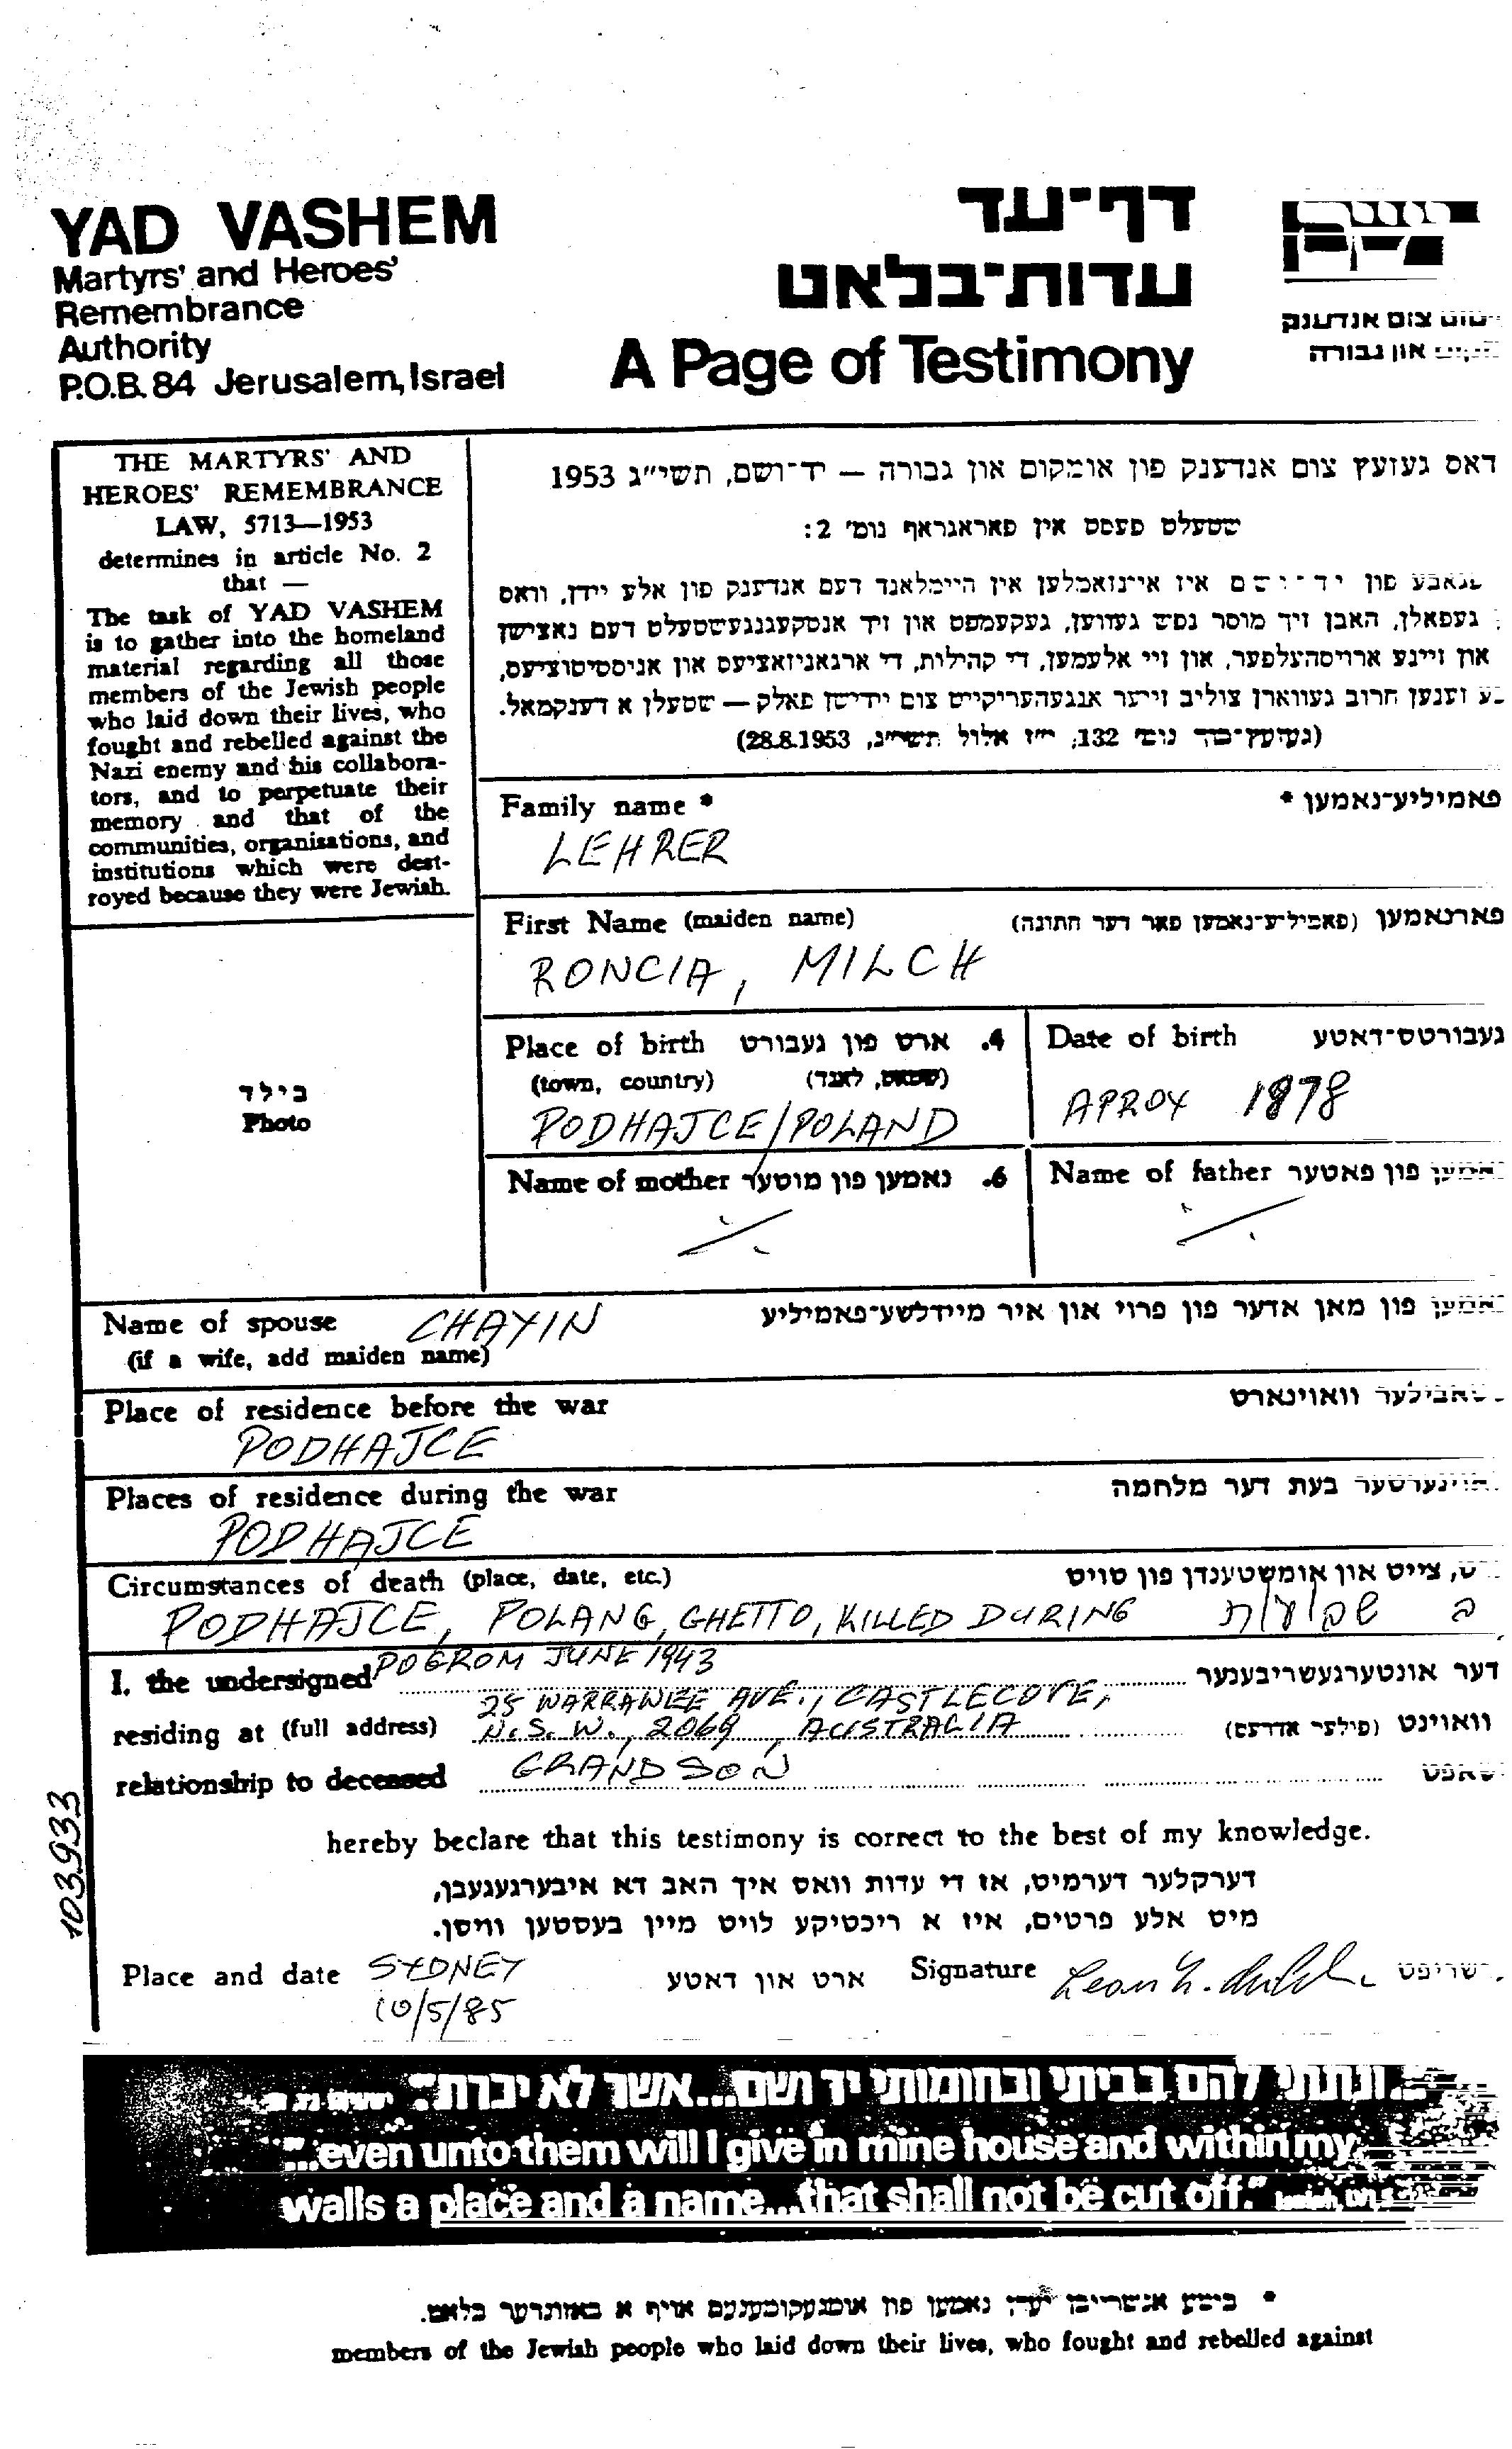 YAD VASHEM
Martyrs' and Heroes'
Remembrance
Authority
P.O.B. 84 Jerusalem, Israel
דף־עד
עדות־בלאט
A Page of Testimony
צום אנדענק
און גבורה
THE MARTYRS' AND
HEROES' REMEMBRANCE
LAW, 5713—1953
determines in article No. 2
that —
The task of YAD VASHEM
is to gather into the homeland
material regarding all those
members of the Jewish people
who laid down their lives, who
fought and rebelled against the
Nazi enemy and his collabora-
tors, and to perpetuate their
memory and that of the
communities, organisations, and
institutions which were dest-
royed because they were Jewish.
דאס געזעץ צום אנדענק פון אומקום און גבורה — יד־ושם, תשי״ג 1953
שטעלט פעסט אין פאראגראף נומ׳ 2:
פון יד־ושם איז איינזאמלען אין היימלאנד דעם אנדענק פון אלע יידן, וואס
געפאלן, האבן זיך מוסר נפש געווען, געקעמפט און זיך אנטקעגנגעשטעלט דעם נאצישן
און זיינע ארויסהעלפער, און זיי אלעמען, די קהילות, די ארגאניזאציעס און אינסטיטוציעס,
זענען חרוב געווארן צוליב זייער אנגעהעריקייט צום יידישן פאלק — שטעלן א דענקמאל.
(געזעץ־בוך נומ׳ 132, י״ז אלול תשי״ג, 28.8.1953)
Family name * פאמיליע־נאמען *
LEHRER
First Name (maiden name) פארנאמען (פאמיליע־נאמען פאר דער חתונה)
RONCIA, MILCH
Place of birth ארט פון געבורט .4
(town, country) (שטאט, לאנד)
PODHAJCE/POLAND
Date of birth געבורטס־דאטע
APROX 1878
Name of mother נאמען פון מוטער .6
Name of father פון פאטער
בילד
Photo
Name of spouse CHAYIN פון מאן אדער פון פרוי און איר מיידלשע־פאמיליע
(if a wife, add maiden name)
Place of residence before the war וואוינארט
PODHAJCE
Places of residence during the war בעת דער מלחמה
PODHAJCE
Circumstances of death (place, date, etc.) צייט און אומשטענדן פון טויט
PODHAJCE, POLANG, GHETTO, KILLED DURING ב שבועות
POGROM JUNE 1943
I, the undersigned דער אונטערגעשריבענער
25 WARRAWEE AVE., CASTLECOVE,
residing at (full address) N.S.W., 2069, AUSTRALIA וואוינט (פולער אדרעס)
relationship to deceased GRANDSON
103933
hereby beclare that this testimony is correct to the best of my knowledge.
דערקלער דערמיט, אז די עדות וואס איך האב דא איבערגעגעבן,
מיט אלע פרטים, איז א ריכטיקע לויט מיין בעסטען וויסן.
Place and date SYDNEY ארט און דאטע Signature
10/5/85
ונתתי להם בביתי ובחומותי יד ושם...אשר לא יכרת״
"...even unto them will I give in mine house and within my
walls a place and a name...that shall not be cut off."
* ביטע אנשרייבן יעדן נאמען פון אומגעקומענעם אויף א באזונדער בלאט.
members of the Jewish people who laid down their lives, who fought and rebelled against